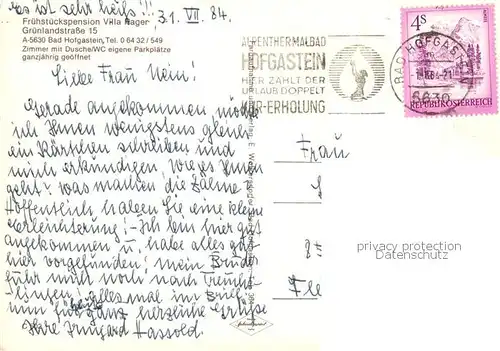 es ist sehr heiß!!! 31. VII. 84.
Frühstückspension Villa Hager
Grünlandstraße 15
A-5630 Bad Hofgastein, Tel. 0 64 32 / 549
Zimmer mit Dusche/WC eigene Parkplätze
ganzjährig geöffnet
Liebe Frau Nein!
Gerade angekommen möchte
ich Ihnen wenigstens gleich
ein Kärtchen schreiben und
mich erkundigen, wie es Ihnen
geht? Was machen die Zähne
Hoffentlich haben Sie eine kleine
Erleichterung! – Ich bin hier gut
angekommen u. habe alles gut
hier vorgefunden; mein Bruder
fuhr mit noch nach
alles mal im Brief
nun für heute ganz herzliche Grüße
Ihre Irmgard Hassold.
AHRENTHERMALBAD
HOFGASTEIN
HIER ZÄHLT DER
URLAUB DOPPELT
KUR-ERHOLUNG
BAD HOFGASTEIN
5630
4S
REPUBLIK ÖSTERREICH
Frau
privacy protection
Datenschutz